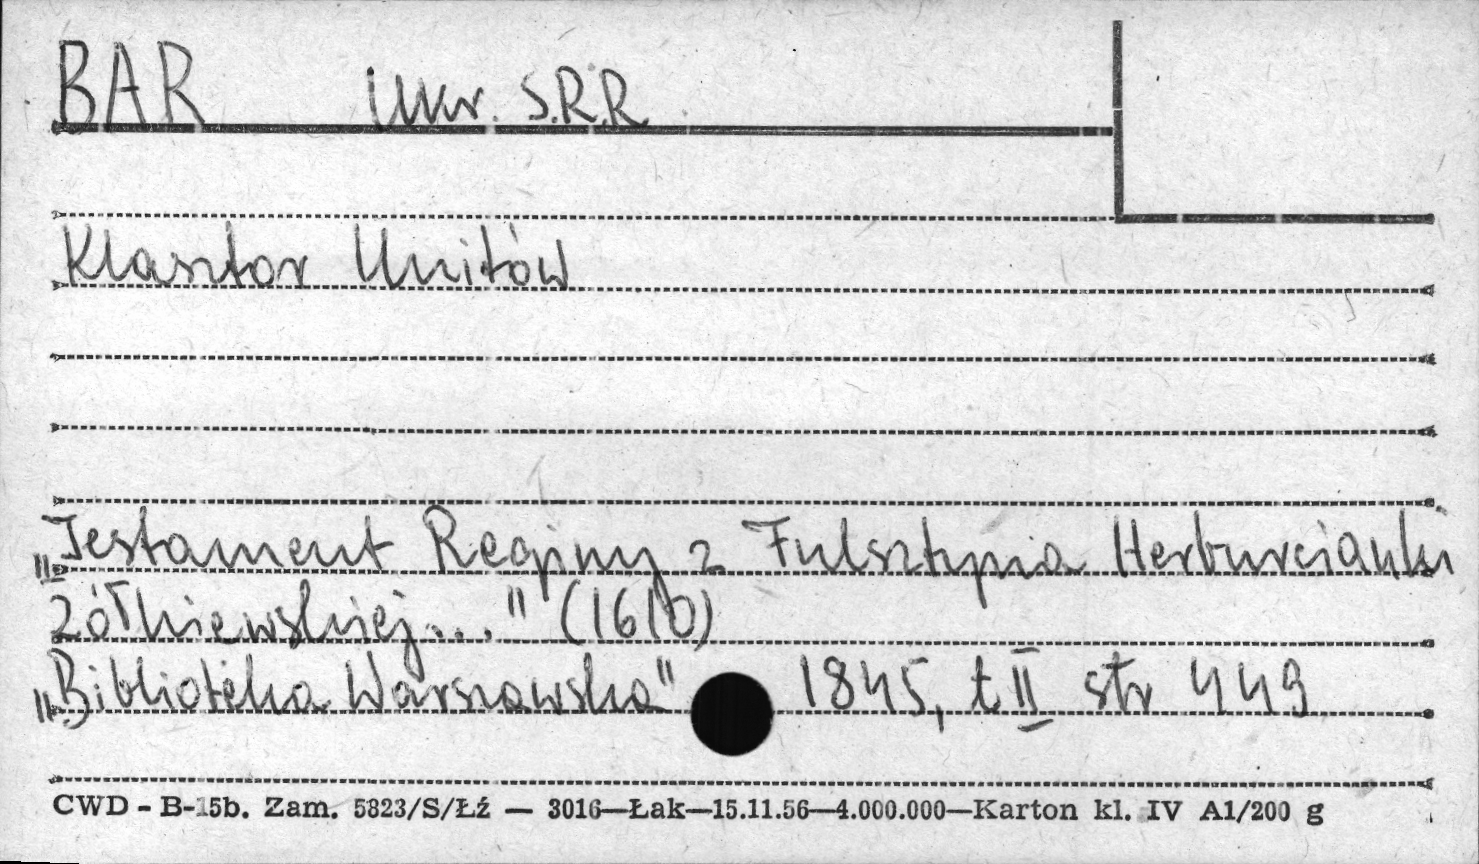 BAR Ukr. S.R.R.
Klasztor Unitów
„Testament Reginy z Fulsztynia Herburcianki
Żółkiewskiej..." (1610)
„Biblioteka Warszawska" 1845, t II str 449
CWD - B-15b. Zam. 5823/S/Łź — 3016—Łak—15.11.56—4.000.000—Karton kl. IV A1/200 g